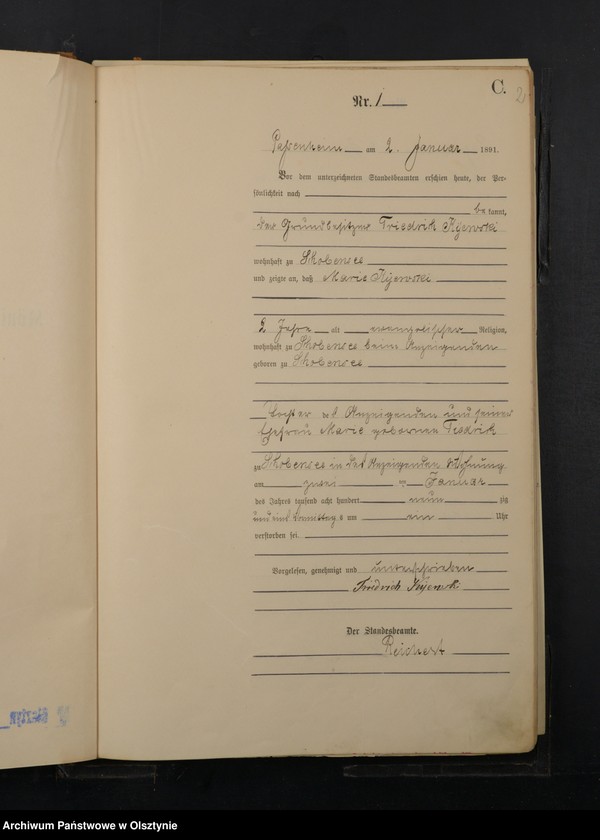 C.
2
Nr. 1
Passenheim am 2. Januar 1891.
Vor dem unterzeichneten Standesbeamten erschien heute, der Per-
sönlichkeit nach
be kannt,
der Grundbesitzer Friedrich Kijewski
wohnhaft zu Skobenoe
und zeigte an, daß Marie Kijewski
2 Jahre alt evangelischer Religion,
wohnhaft zu Skobenoe beim Anzeigenden
geboren zu Skobenoe
Tochter des Anzeigenden und seiner
Ehefrau Marie geborenen
zu Skobenoe in des Anzeigenden Wohnung
am zwei ten Januar
des Jahres tausend acht hundert neun zig
und eins Vormittags um ein Uhr
verstorben sei.
Vorgelesen, genehmigt und unterschrieben
Friedrich Kijewsk
Der Standesbeamte.
Reichert
Archiwum Państwowe w Olsztynie